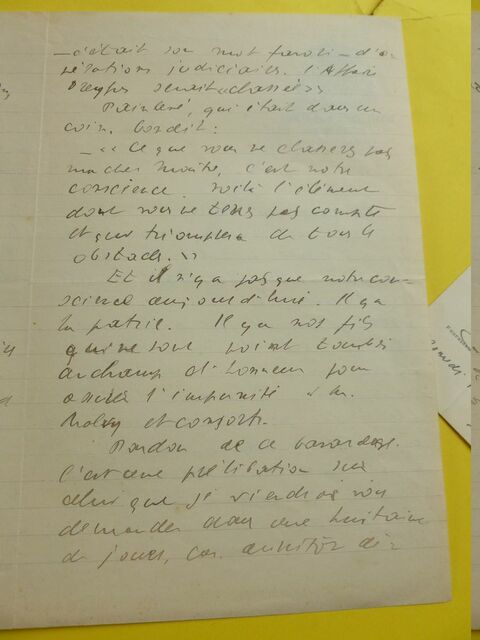 — c'était son mot favori — d'o-
pérations judiciaires. l'Affaire
Dreyfus serait « classée »
Painlevé, qui était dans un
coin, bondit :
— « Ce que vous ne classerez pas
mon cher maître, c'est notre
conscience. Voilà l'élément
dont vous ne tenez pas compte
et qui triomphera de tous les
obstacles. »
Et il n'y a pas que notre con-
science aujourd'hui. Il y a
la patrie. Il y a nos fils
qui ne sont point tombés
au champ d'honneur pour
assurer l'impunité à M.
Malvy et consorts.
Pardon de ce bavardage.
C'est une prélibation sur
celui que je viendrai vous
demander dans une huitaine
de jours, car aussitôt dé-